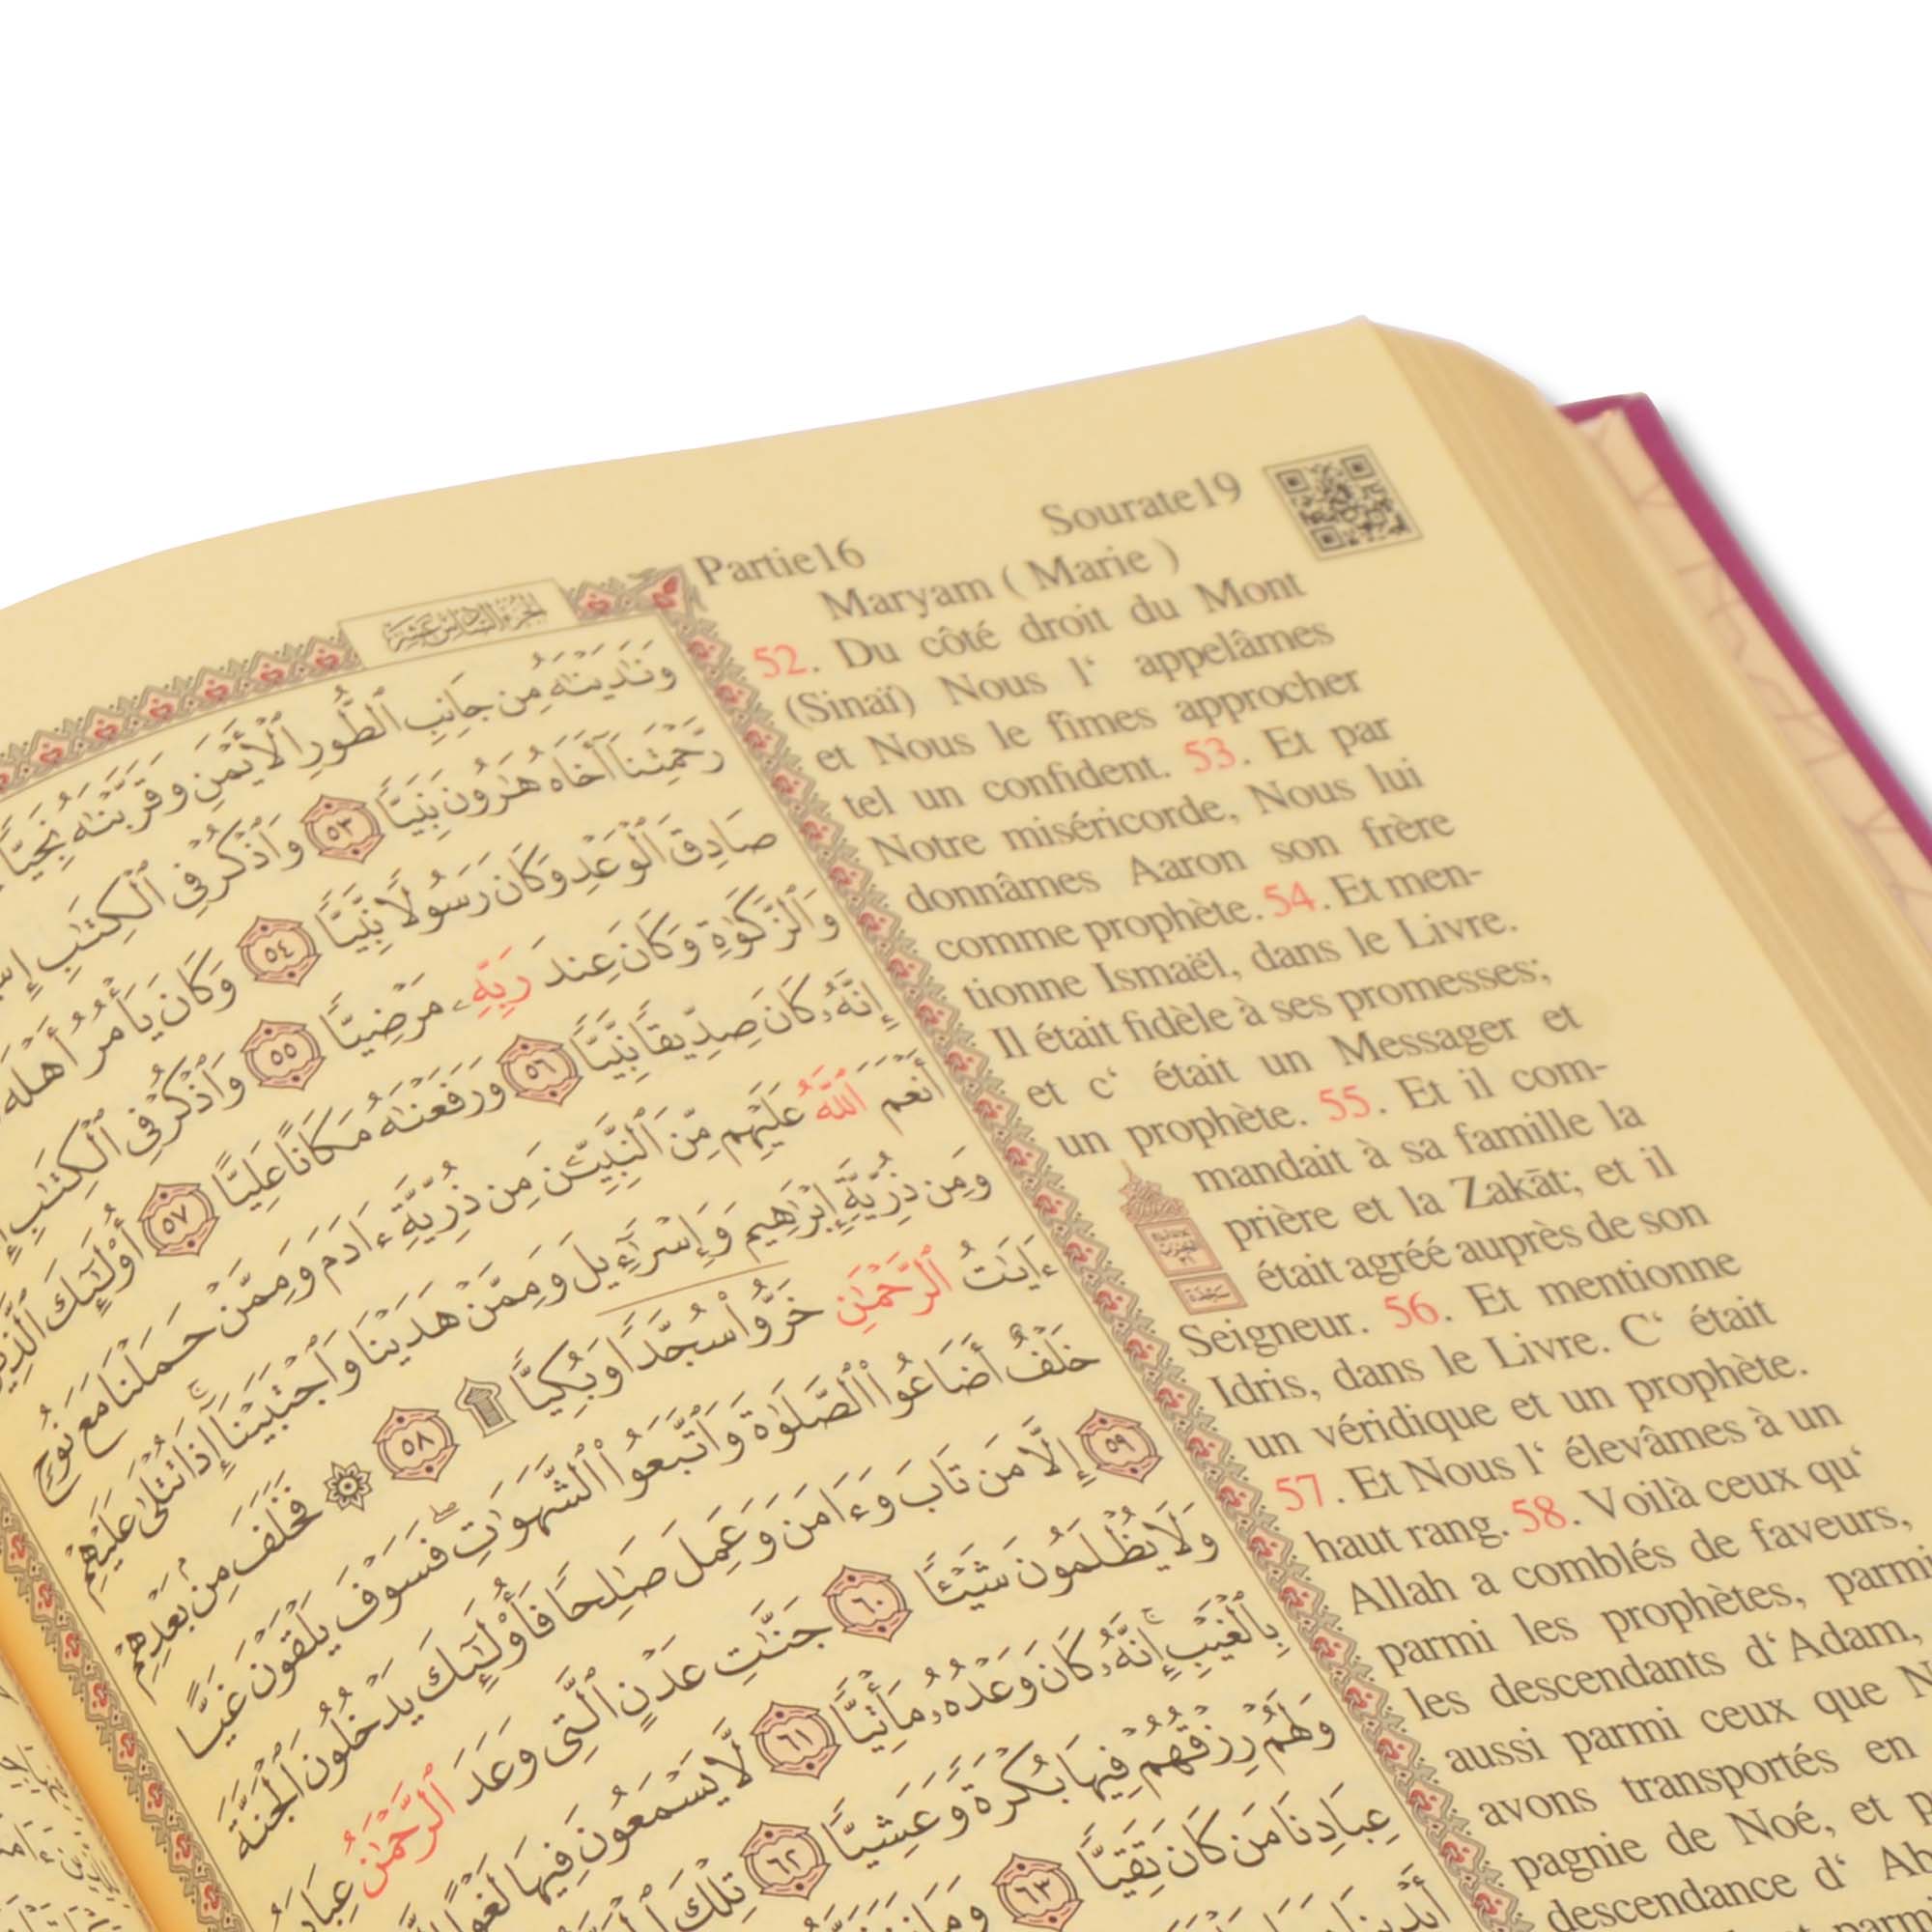 Partie16
Sourate19
Maryam ( Marie )
52. Du côté droit du Mont
(Sinaï) Nous l‘ appelâmes
et Nous le fîmes approcher
tel un confident. 53. Et par
Notre miséricorde, Nous lui
donnâmes Aaron son frère
comme prophète. 54. Et men-
tionne Ismaël, dans le Livre.
Il était fidèle à ses promesses;
et c‘ était un Messager et
un prophète. 55. Et il com-
mandait à sa famille la
prière et la Zakāt; et il
était agréé auprès de son
Seigneur. 56. Et mentionne
Idris, dans le Livre. C‘ était
un véridique et un prophète.
57. Et Nous l‘ élevâmes à un
haut rang. 58. Voilà ceux qu‘
Allah a comblés de faveurs,
parmi les prophètes, parmi
les descendants d‘Adam,
aussi parmi ceux que
avons transportés en
pagnie de Noé, et
descendance d‘
الجزء السادس عشر
وَنَٰدَيۡنَٰهُ مِن جَانِبِ ٱلطُّورِ ٱلۡأَيۡمَنِ وَقَرَّبۡنَٰهُ نَجِيّٗا
رَّحۡمَتِنَآ أَخَاهُ هَٰرُونَ نَبِيّٗا ٥٣ وَٱذۡكُرۡ فِي ٱلۡكِتَٰبِ
صَادِقَ ٱلۡوَعۡدِ وَكَانَ رَسُولٗا نَّبِيّٗا ٥٤ وَكَانَ يَأۡمُرُ أَهۡلَهُۥ
وَٱلزَّكَوٰةِ وَكَانَ عِندَ رَبِّهِۦ مَرۡضِيّٗا ٥٥ وَٱذۡكُرۡ فِي ٱلۡكِتَٰبِ
إِنَّهُۥ كَانَ صِدِّيقٗا نَّبِيّٗا ٥٦ وَرَفَعۡنَٰهُ مَكَانًا عَلِيًّا ٥٧ أُوْلَٰٓئِكَ ٱلَّذِينَ
أَنۡعَمَ ٱللَّهُ عَلَيۡهِم مِّنَ ٱلنَّبِيِّـۧنَ مِن ذُرِّيَّةِ ءَادَمَ وَمِمَّنۡ حَمَلۡنَا مَعَ نُوحٖ
وَمِن ذُرِّيَّةِ إِبۡرَٰهِيمَ وَإِسۡرَٰٓءِيلَ وَمِمَّنۡ هَدَيۡنَا وَٱجۡتَبَيۡنَآۚ إِذَا تُتۡلَىٰ عَلَيۡهِمۡ
ءَايَٰتُ ٱلرَّحۡمَٰنِ خَرُّواْۤ سُجَّدٗا وَبُكِيّٗا ۩ ٥٨ ۞ فَخَلَفَ مِنۢ بَعۡدِهِمۡ
خَلۡفٌ أَضَاعُواْ ٱلصَّلَوٰةَ وَٱتَّبَعُواْ ٱلشَّهَوَٰتِۖ فَسَوۡفَ يَلۡقَوۡنَ غَيًّا
٥٩ إِلَّا مَن تَابَ وَءَامَنَ وَعَمِلَ صَٰلِحٗا فَأُوْلَٰٓئِكَ يَدۡخُلُونَ ٱلۡجَنَّةَ
وَلَا يُظۡلَمُونَ شَيۡـٔٗا ٦٠ جَنَّٰتِ عَدۡنٍ ٱلَّتِي وَعَدَ ٱلرَّحۡمَٰنُ
بِٱلۡغَيۡبِۚ إِنَّهُۥ كَانَ وَعۡدُهُۥ مَأۡتِيّٗا ٦١ لَّا يَسۡمَعُونَ فِيهَا لَغۡوًا
وَلَهُمۡ رِزۡقُهُمۡ فِيهَا بُكۡرَةٗ وَعَشِيّٗا ٦٢ تِلۡكَ
عِبَادِنَا مَن كَانَ تَقِيّٗا ٦٣